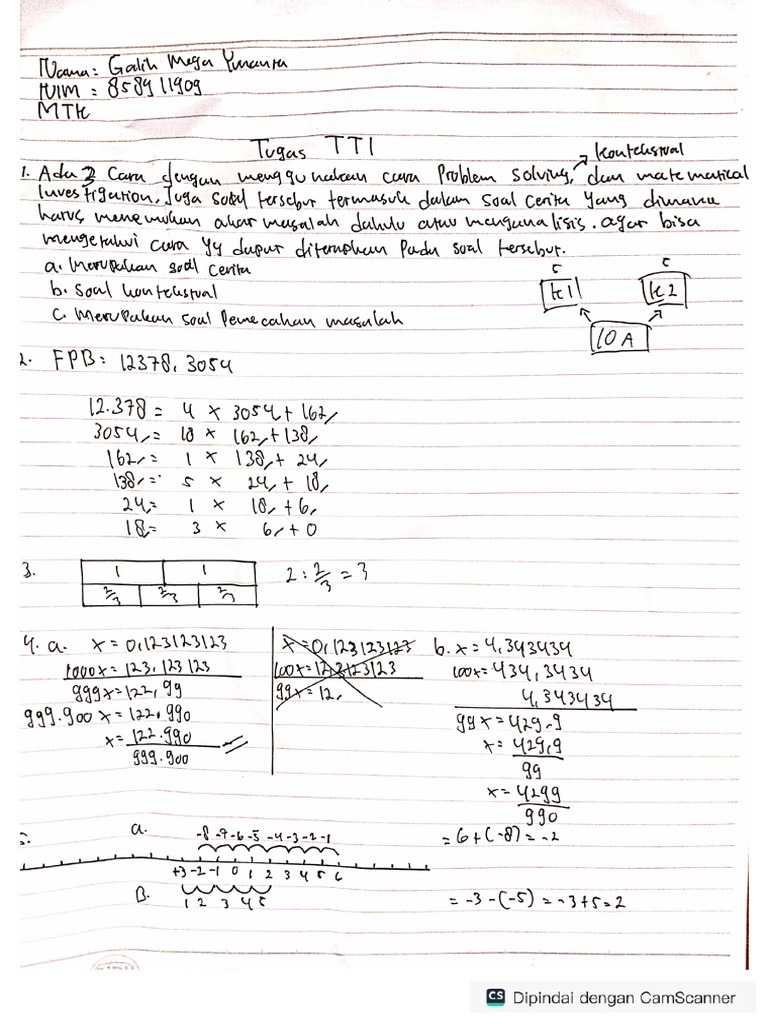 Nama: Galih Mega Yunanta
NIM = 858911909
MTK
Tugas TT1
kontekstual
1. Ada 3 Cara dengan menggunakan cara Problem Solving, dan matematical
Investigation, Juga soal tersebut termasuk dalam soal cerita yang dimana
harus menemukan akar masalah dahulu atau menganalisis. agar bisa
mengetahui cara yg dapat diterapkan Pada soal tersebut.
a. Merupakan soal cerita
b. Soal kontekstual
c. Merupakan soal Pemecahan masalah
5 5
k1 k2
10 A
2. FPB: 12378, 3054
12.378 = 4 x 3054 + 162
3054 = 18 x 162 + 138
162 = 1 x 138 + 24
138 = 5 x 24 + 18
24 = 1 x 18 + 6
18 = 3 x 6 + 0
3. 1 1
2/3 2/3 2/3
2 : 2/3 = 3
4. a. x = 0,123123123
1000x = 123,123123
999x = 122,99
999.900 x = 122,990
x = 122.990
999.900
x = 0,123123123
100x = 12,3123123
99x = 12,
b. x = 4,343434
100x = 434,3434
4,343434
99x = 429,9
x = 429,9
99
x = 4299
990
5. a. -8 -7 -6 -5 -4 -3 -2 -1
= 6 + (-8) = -2
+3 -2 -1 0 1 2 3 4 5 6
B. 1 2 3 4 5
= -3 - (-5) = -3 + 5 = 2
CS Dipindai dengan CamScanner